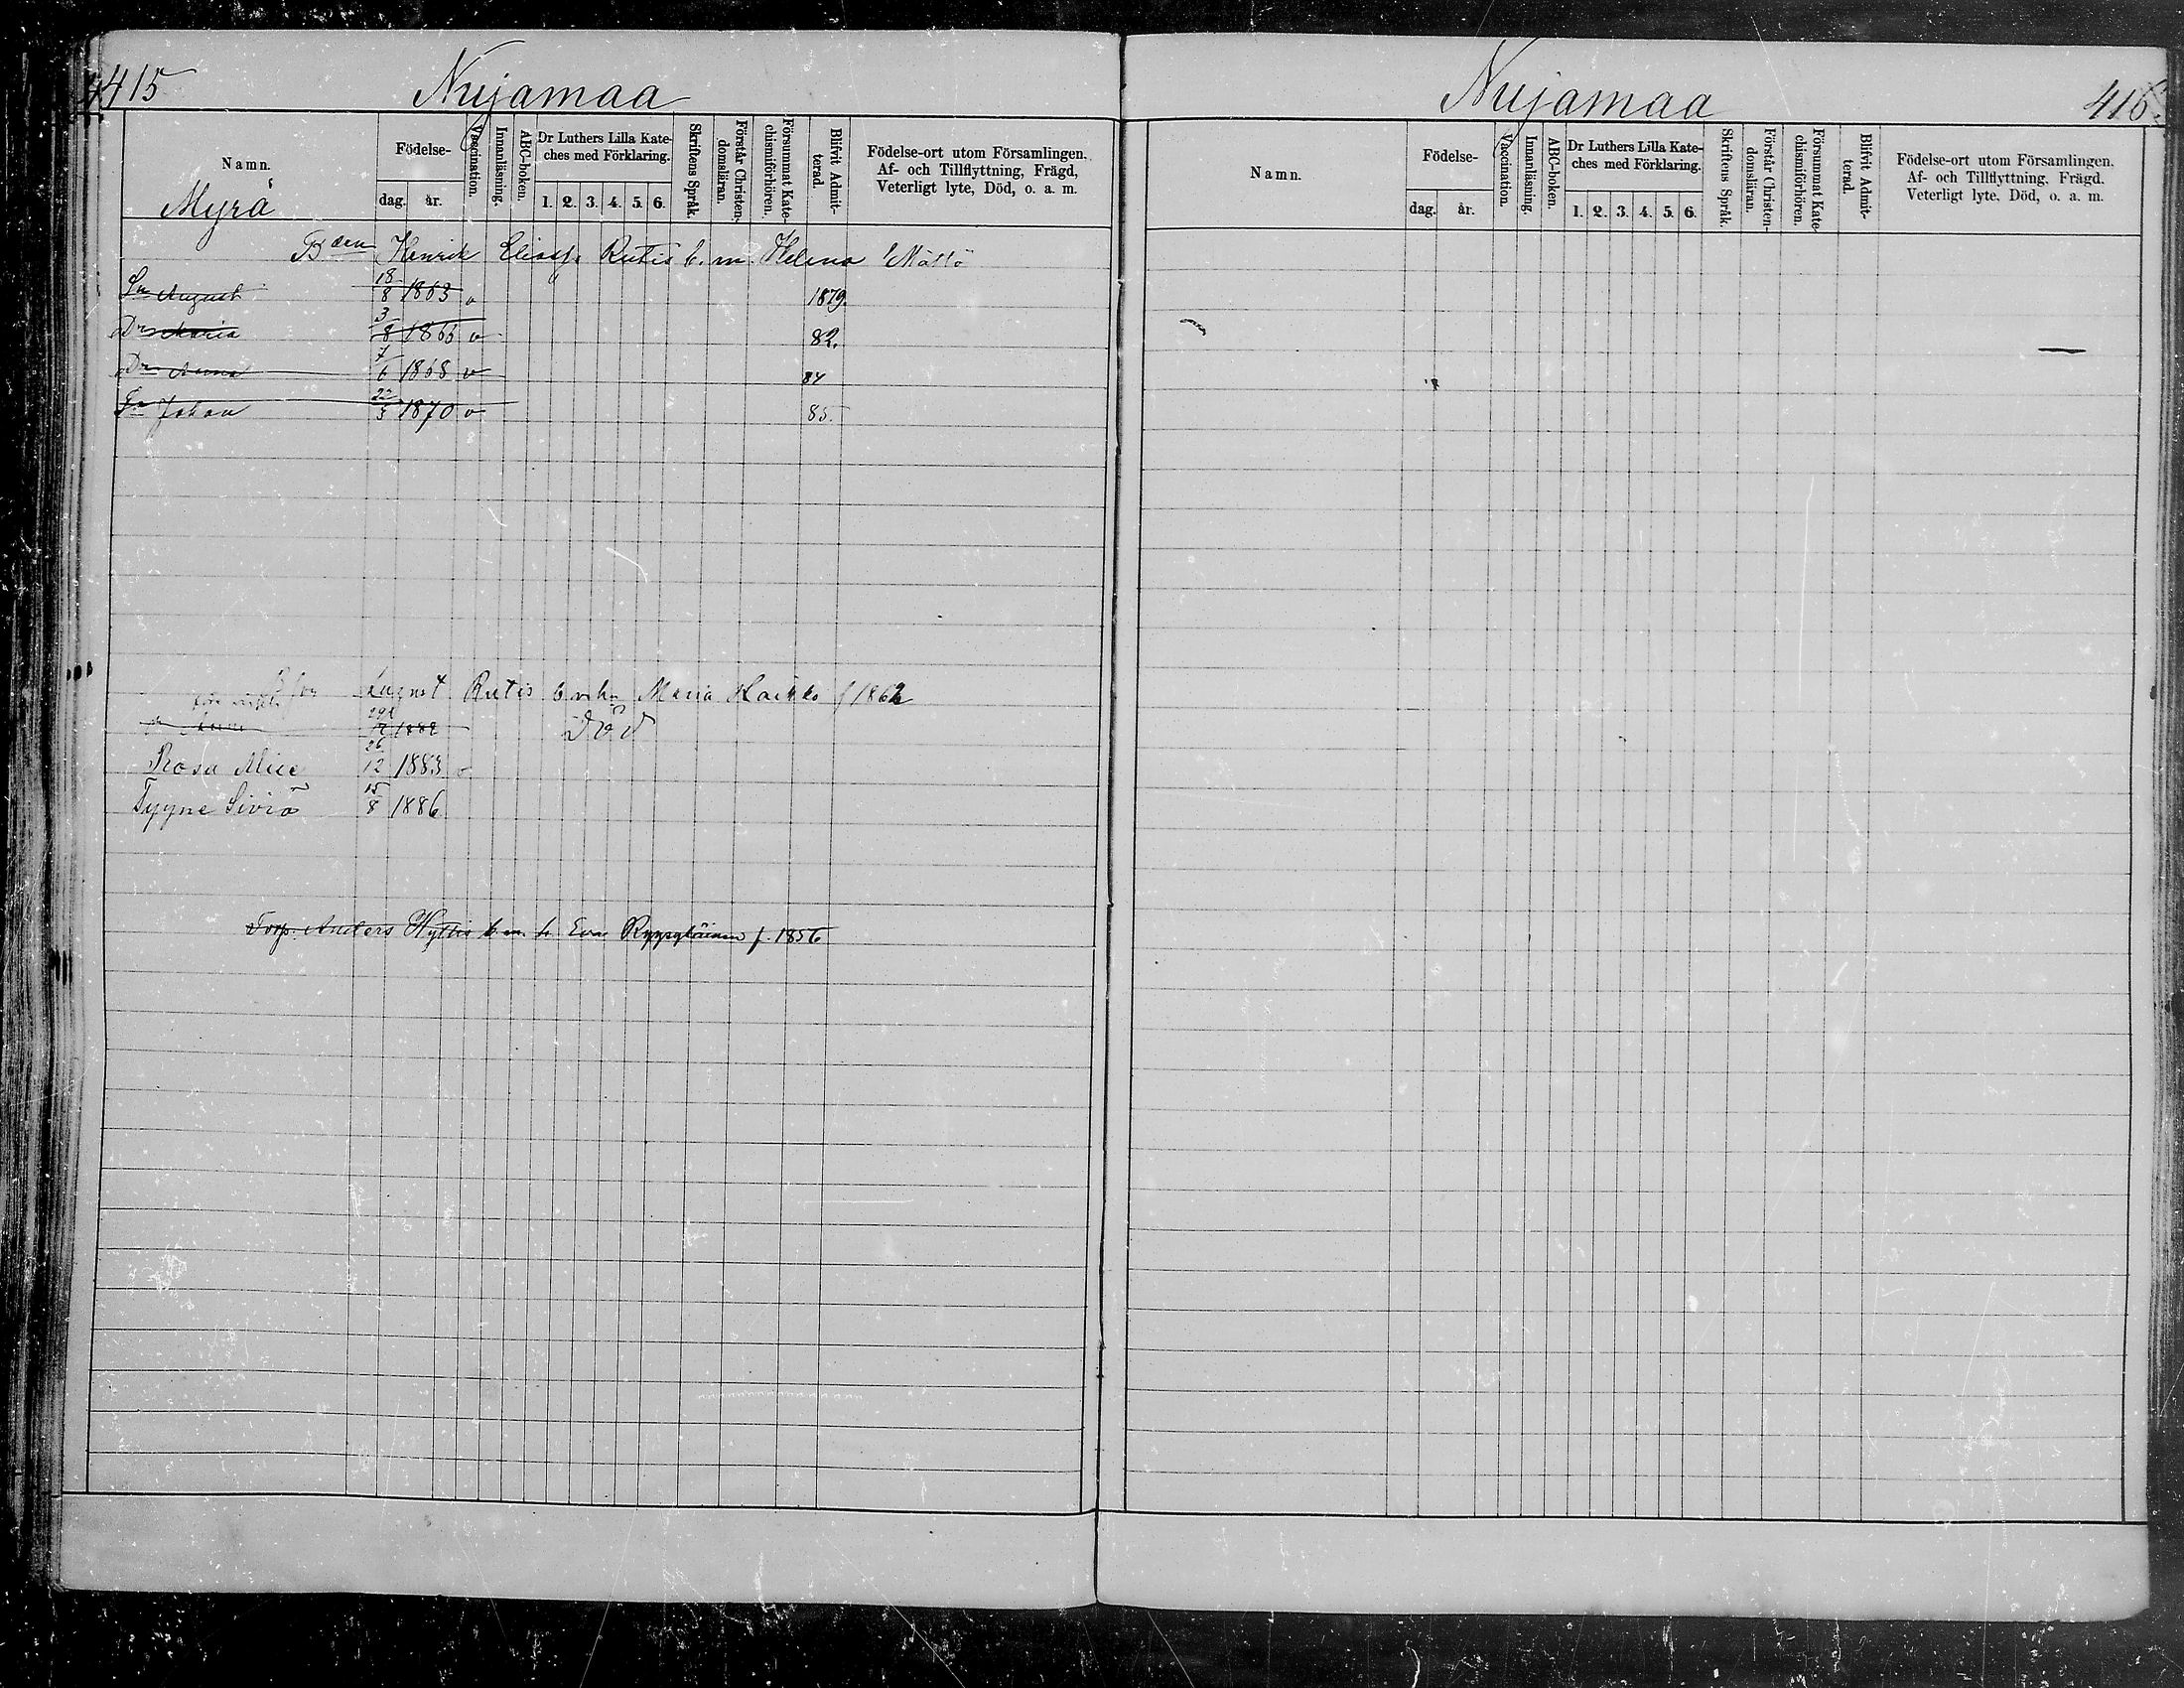 415
Nujamaa
Namn.
Födelse-
dag. år.
Vaccination.
Innanläsning.
ABC-boken.
Dr Luthers Lilla Kate-
ches med Förklaring.
1. 2. 3. 4. 5. 6.
Skriftens Språk.
Förstår Christen-
domsläran.
Försummat Kate-
chismiförhören.
Blifvit Admit-
terad.
Födelse-ort utom Församlingen.
Af- och Tillflyttning, Frägd,
Veterligt lyte, Död, o. a. m.
Myrä
Bden Henrik Eliass. Rutis b. m. Helena Mättö
Sn August 18/8 1863 v 1879.
Dr Maria 3/8 1866 v 82.
Dr Anna 7/6 1868 v 84
Sn Johan 22/3 1870 v 85.
August Rutis b. m. h. Maria Haikko f 1862
1882 Död
Rosa Alice 26/12 1883 v
Tyyne Siviä 15/8 1886
Torp. Anders Hyttis b. m. h. Eva Ryypyläinen f. 1856
Nujamaa
416.
Namn.
Födelse-
dag. år.
Vaccination.
Innanläsning.
ABC-boken.
Dr Luthers Lilla Kate-
ches med Förklaring.
1. 2. 3. 4. 5. 6.
Skriftens Språk.
Förstår Christen-
domsläran.
Försummat Kate-
chismiförhören.
Blifvit Admit-
terad.
Födelse-ort utom Församlingen.
Af- och Tillflyttning, Frägd.
Veterligt lyte, Död, o. a. m.